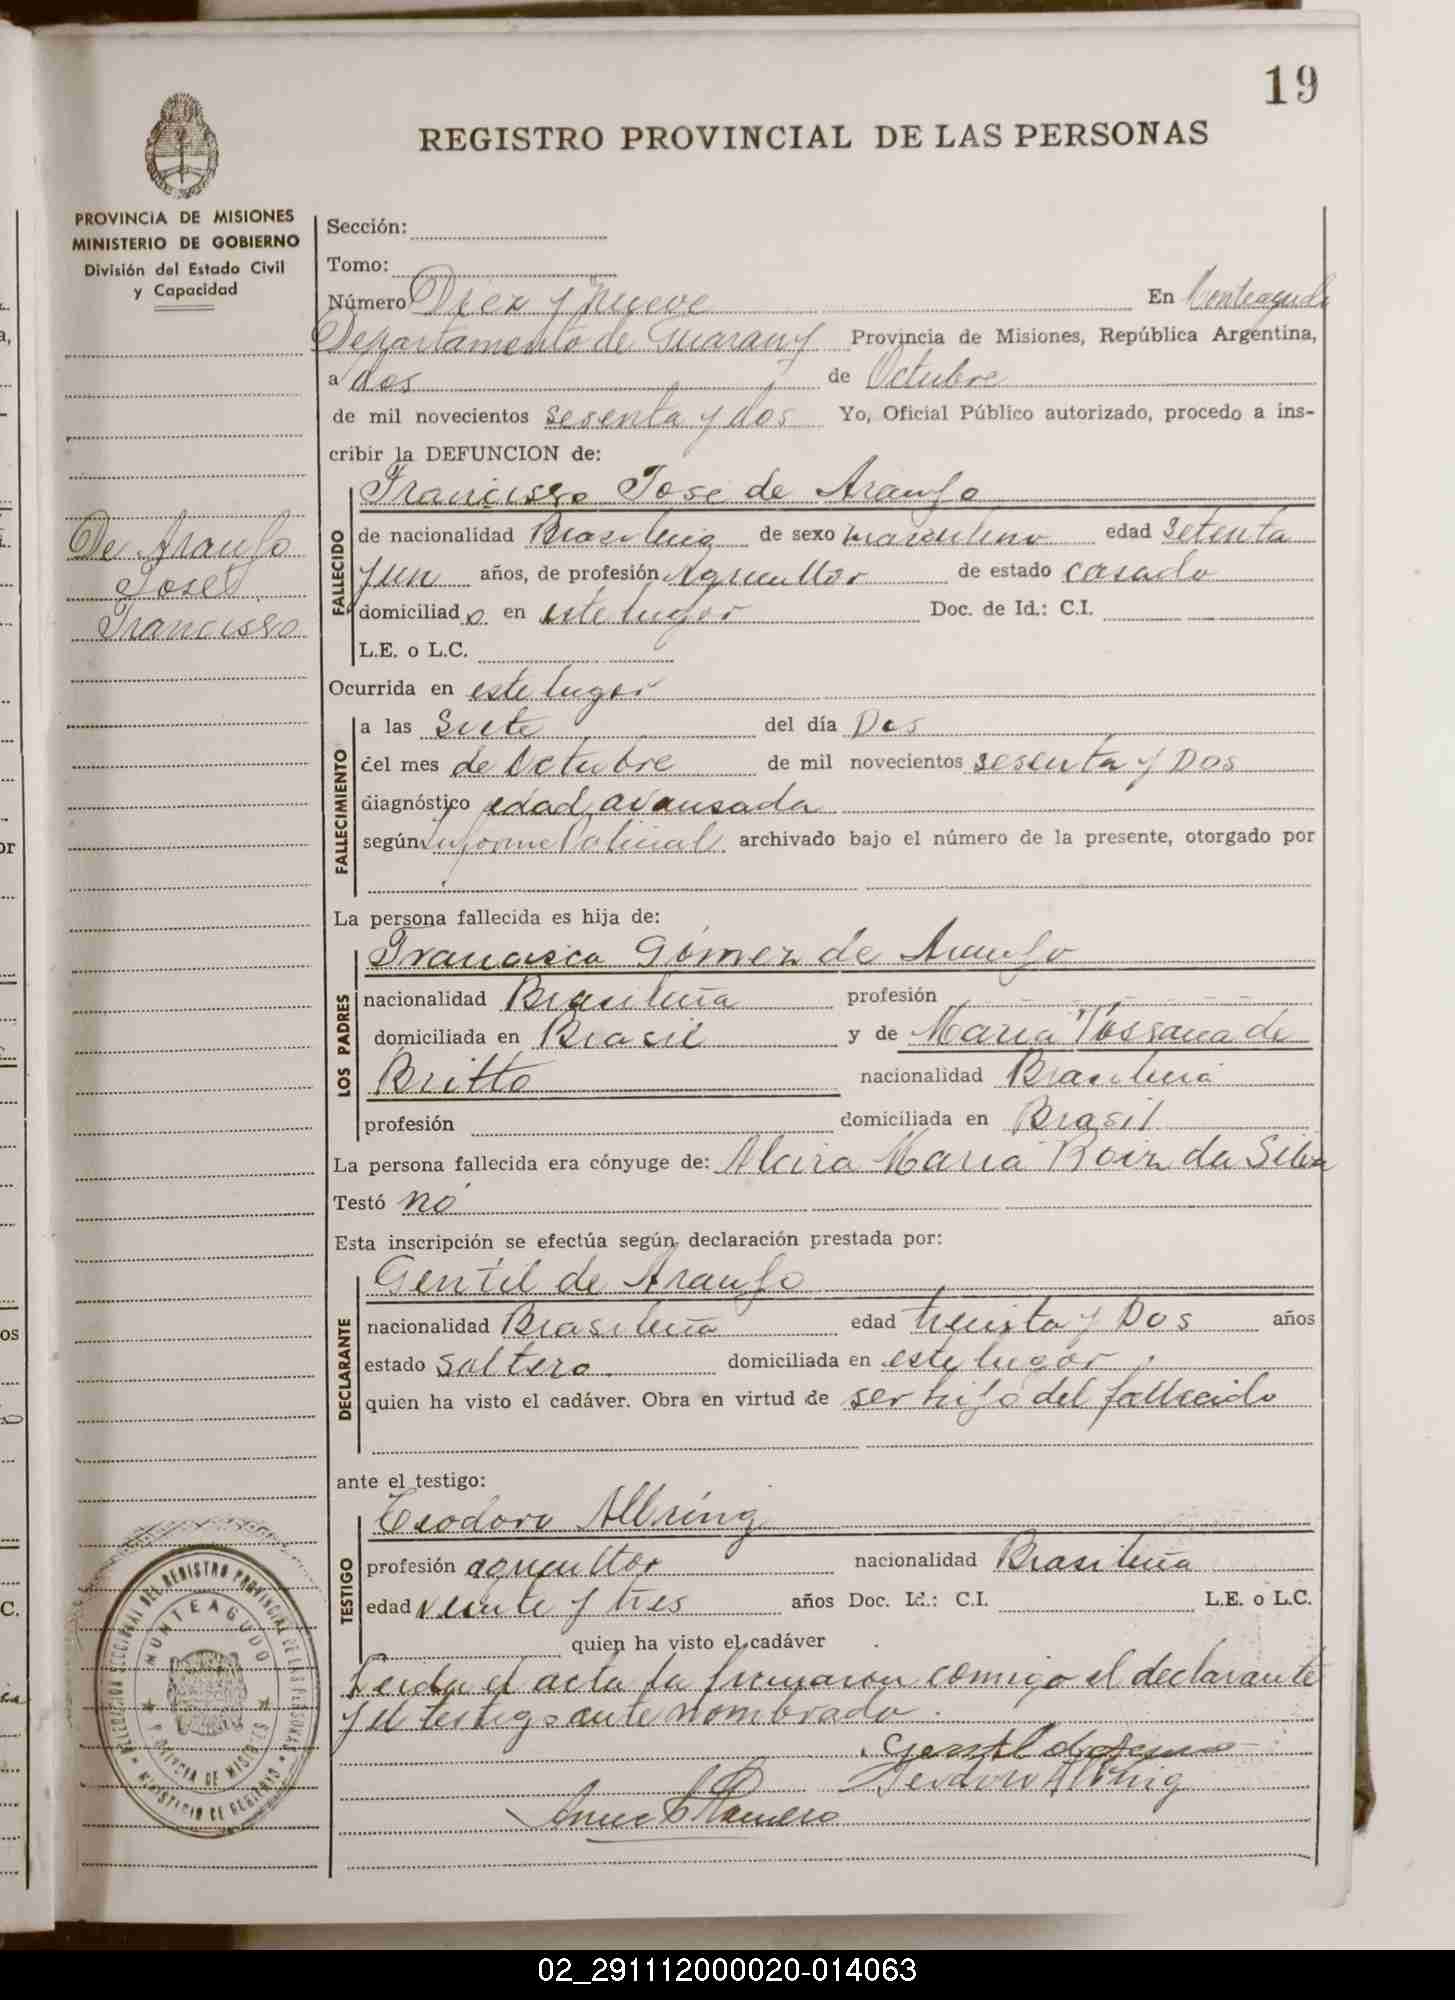 19
REGISTRO PROVINCIAL DE LAS PERSONAS
PROVINCIA DE MISIONES
MINISTERIO DE GOBIERNO
División del Estado Civil
y Capacidad
De Araujo
José
Francisco
Sección:
Tomo:
Número Diez y nueve En Monteagudo
Departamento de Guarany Provincia de Misiones, República Argentina,
a dos de Octubre
de mil novecientos sesenta y dos Yo, Oficial Público autorizado, procedo a ins-
cribir la DEFUNCION de:
FALLECIDO
Francisco José de Araujo
de nacionalidad Brasileña de sexo masculino edad setenta
y un años, de profesión Agricultor de estado casado
domiciliado en este lugar Doc. de Id.: C.I.
L.E. o L.C.
Ocurrida en este lugar
FALLECIMIENTO
a las Siete del día Dos
del mes de Octubre de mil novecientos sesenta y Dos
diagnóstico edad avansada
según informe Policial archivado bajo el número de la presente, otorgado por
La persona fallecida es hija de:
LOS PADRES
Francisco Gómez de Araujo
nacionalidad Brasileña profesión
domiciliada en Brasil y de Maria de
Britto nacionalidad Brasileña
profesión domiciliada en Brasil
La persona fallecida era cónyuge de: Alcira Maria da Silva
Testó no
Esta inscripción se efectúa según declaración prestada por:
DECLARANTE
Gentil de Araujo
nacionalidad Brasileña edad treinta y Dos años
estado soltero domiciliada en este lugar
quien ha visto el cadáver. Obra en virtud de ser hijo del fallecido
ante el testigo:
TESTIGO
Teodoro Albring
profesión agricultor nacionalidad Brasileña
edad veinte y tres años Doc. Id.: C.I. L.E. o L.C.
quien ha visto el cadáver
Leida el acta la firmaron comigo el declarante
y el testigo ante nombrado.
MONTEAGUDO
PROVINCIA DE MISIONES
DELEGACION SECCIONAL DEL REGISTRO PROVINCIAL DE LAS PERSONAS
MINISTERIO DE GOBIERNO
02_291112000020-014063